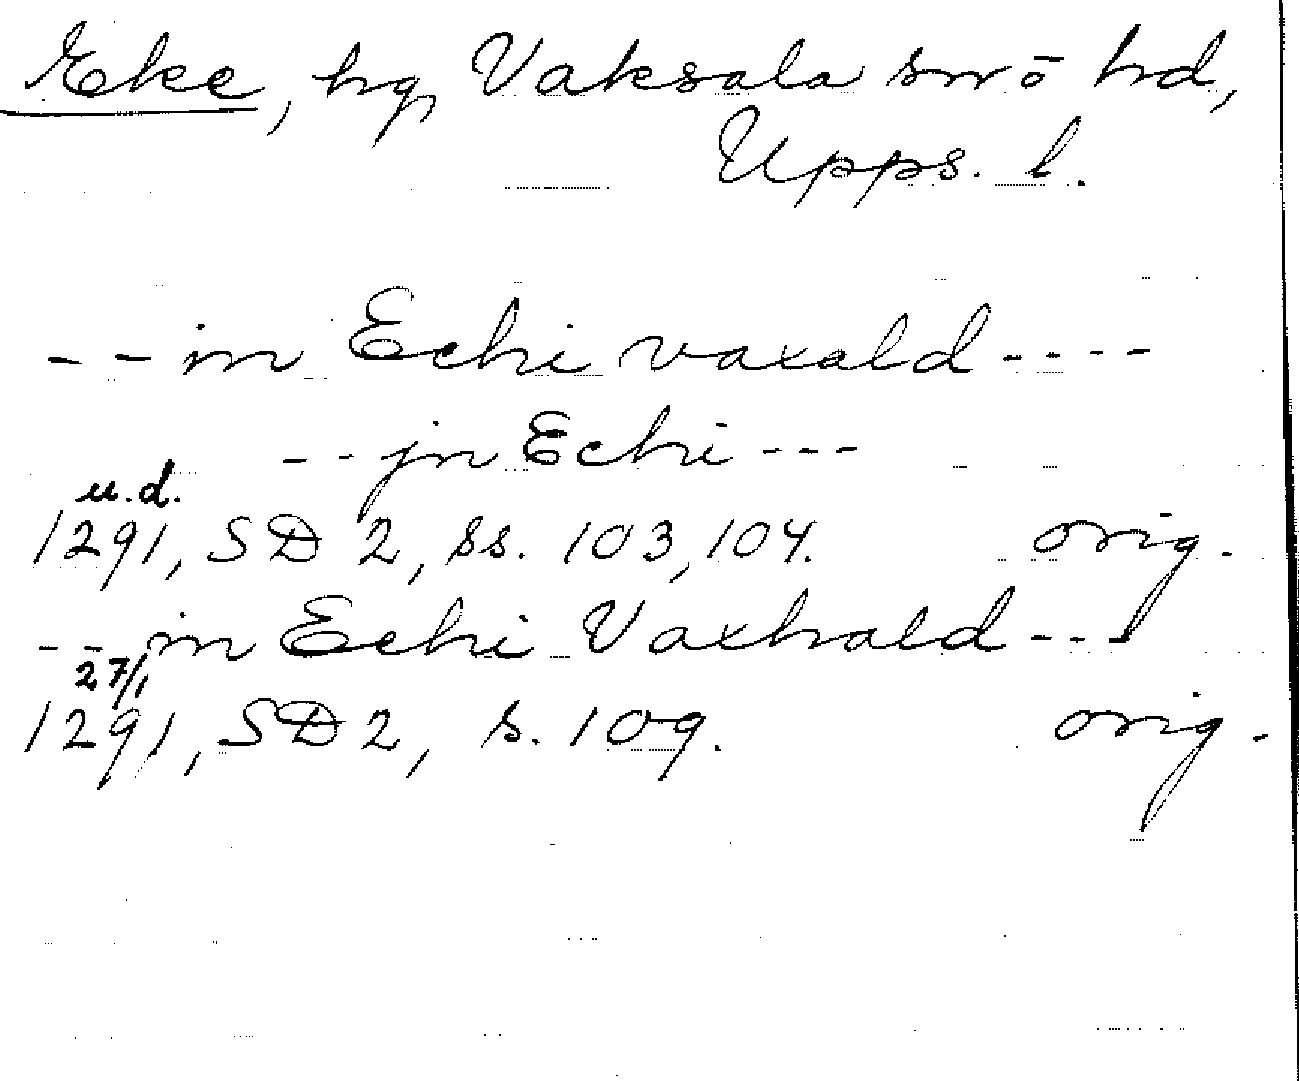 Eke, hg, Vaksala sn o hd,
Upps. l.
-- in Echi vaxald ----
-- jn Echi ---
u.d.
1291, SD 2, ss. 103, 104. orig.
-- in Echi Vaxhald ---
27/1
1291, SD 2, s. 109. orig.